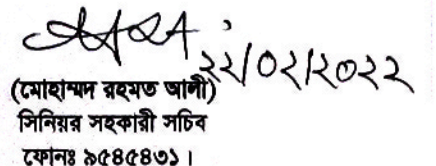 ২২/০২/২০২২
(মোহাম্মদ রহমত আলী)
সিনিয়র সহকারী সচিব
ফোনঃ ৯৫৪৫৪৩১।